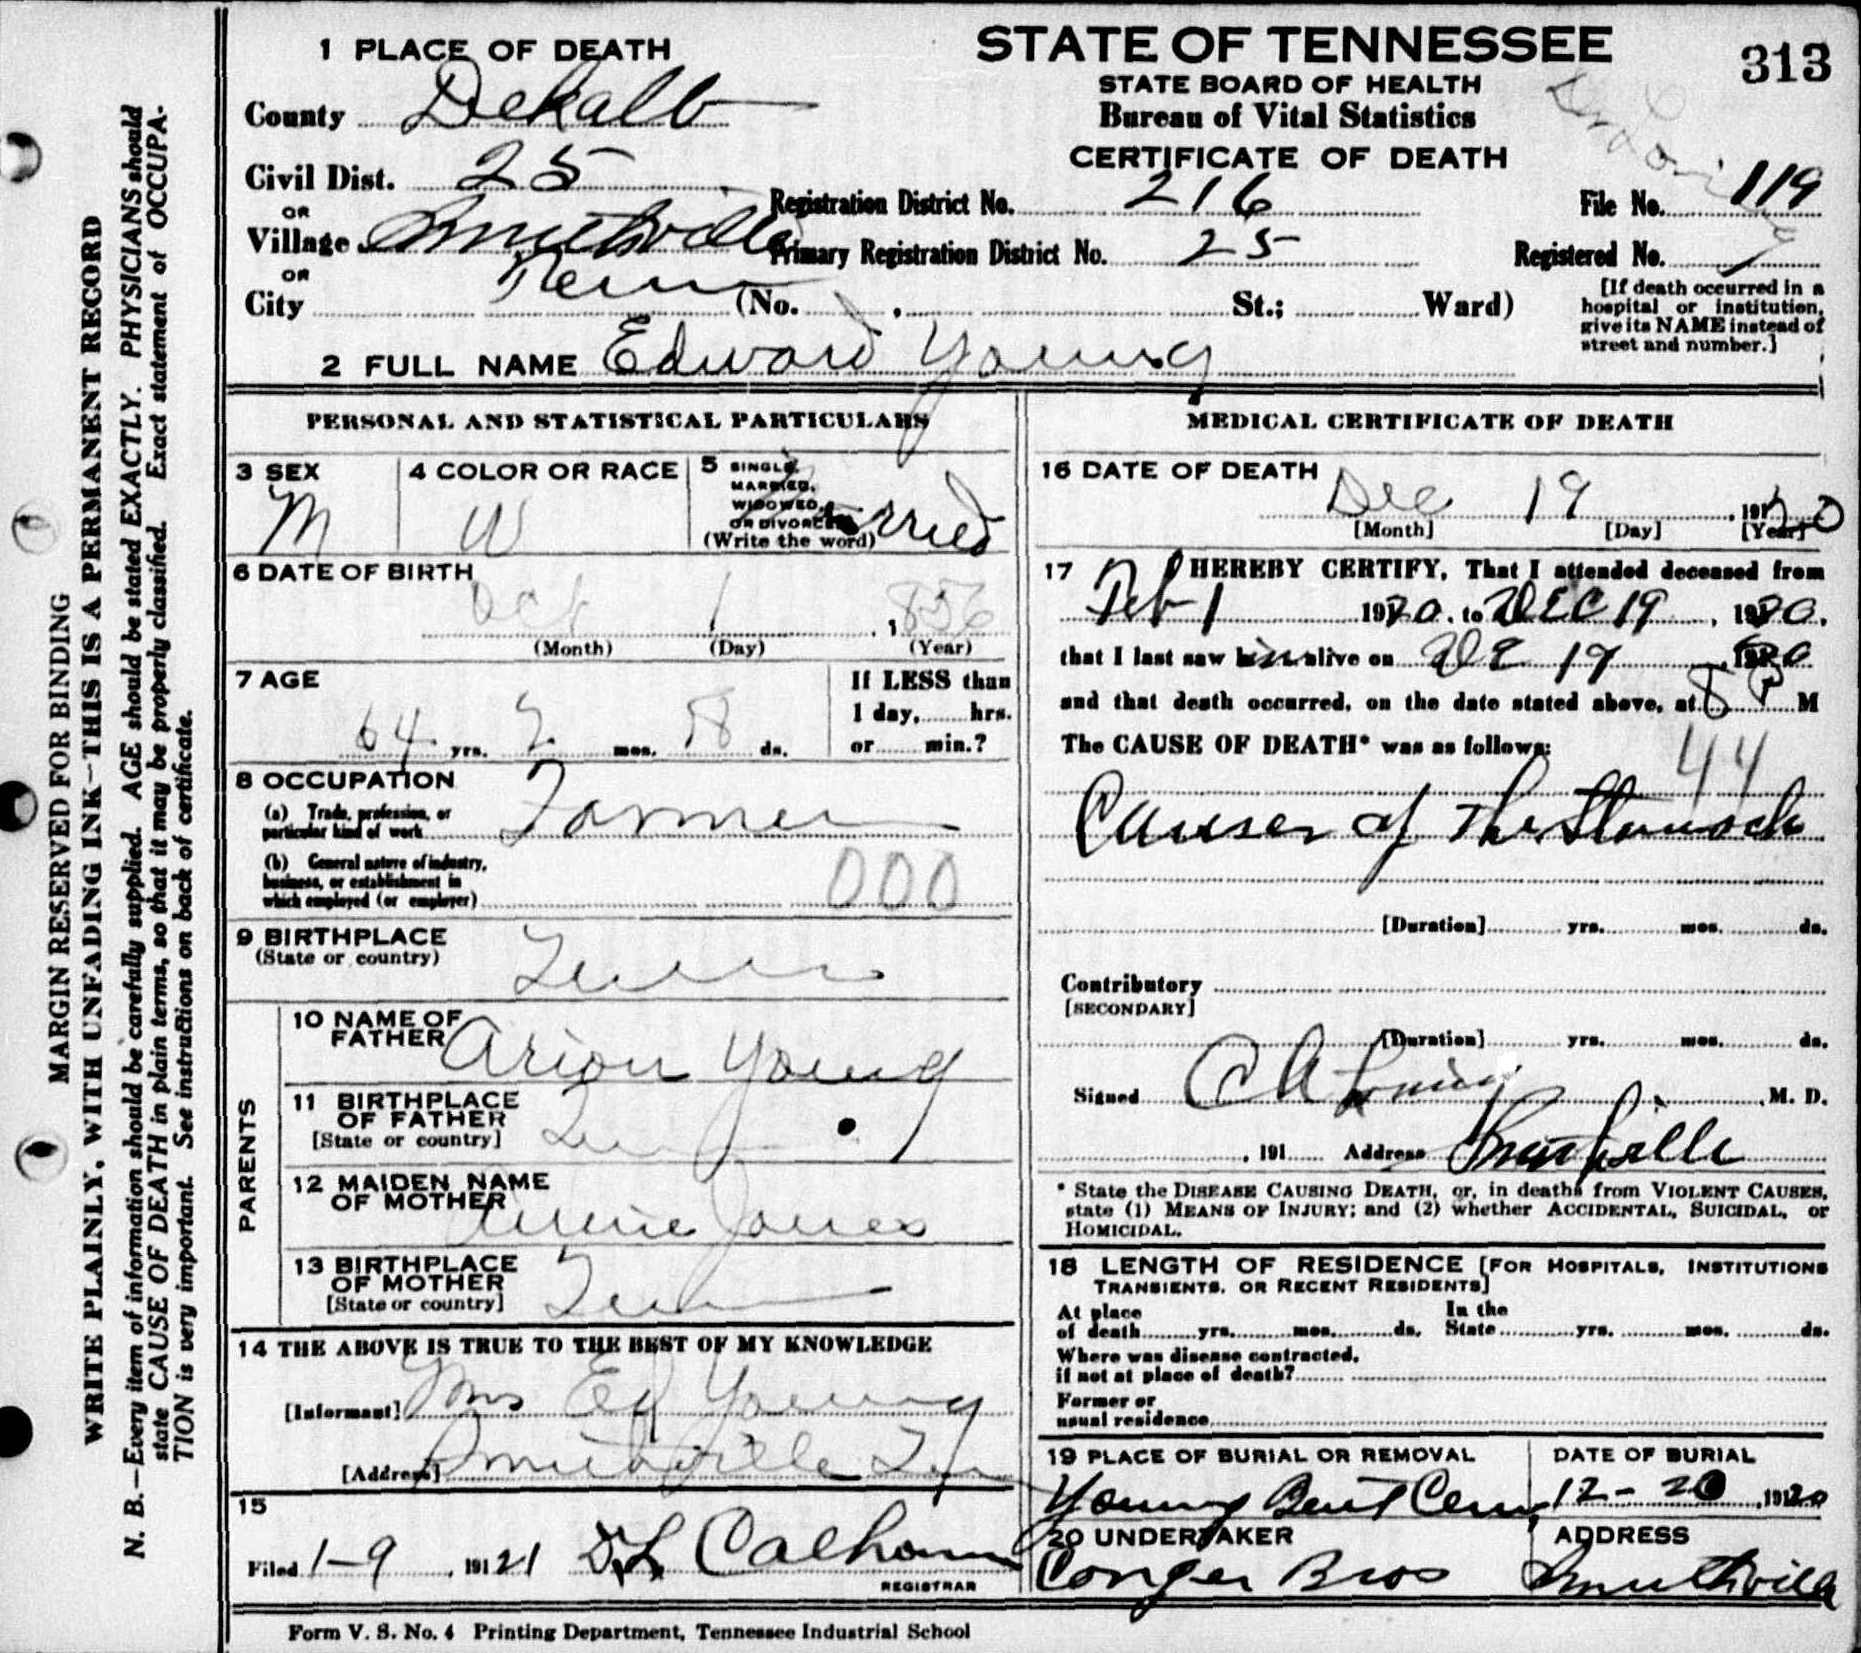 MARGIN RESERVED FOR BINDING
WRITE PLAINLY, WITH UNFADING INK—THIS IS A PERMANENT RECORD
N. B.—Every item of information should be carefully supplied. AGE should be stated EXACTLY. PHYSICIANS should
state CAUSE OF DEATH in plain terms, so that it may be properly classified. Exact statement of OCCUPA-
TION is very important. See instructions on back of certificate.
313
STATE OF TENNESSEE
STATE BOARD OF HEALTH
Bureau of Vital Statistics
CERTIFICATE OF DEATH
1 PLACE OF DEATH
County Dekalb
Civil Dist. 25
OR
Village Smithville
OR Tenn
City (No. , St.; Ward)
Registration District No. 216
File No. 119
Primary Registration District No. 25
Registered No.
[If death occurred in a
hospital or institution,
give its NAME instead of
street and number.]
2 FULL NAME Edward Young
PERSONAL AND STATISTICAL PARTICULARS
3 SEX M
4 COLOR OR RACE W
5 SINGLE, MARRIED, WIDOWED, OR DIVORCED (Write the word) Married
6 DATE OF BIRTH
Oct 1 , 1856
(Month) (Day) (Year)
7 AGE
64 yrs. 2 mos. 18 ds.
If LESS than
1 day, hrs.
or min.?
8 OCCUPATION
(a) Trade, profession, or
particular kind of work Farmer
(b) General nature of industry,
business, or establishment in
which employed (or employer) 000
9 BIRTHPLACE
(State or country) Tenn
PARENTS
10 NAME OF
FATHER Arion Young
11 BIRTHPLACE
OF FATHER
[State or country] Tenn
12 MAIDEN NAME
OF MOTHER Annie Jones
13 BIRTHPLACE
OF MOTHER
[State or country] Tenn
14 THE ABOVE IS TRUE TO THE BEST OF MY KNOWLEDGE
[Informant] Mrs Ed Young
[Address] Smithville Tn
15
Filed 1-9 , 191 21 D L Calhoun
REGISTRAR
Form V. S. No. 4 Printing Department, Tennessee Industrial School
MEDICAL CERTIFICATE OF DEATH
16 DATE OF DEATH
Dec 19 , 1920
[Month] [Day] [Year]
17 I HEREBY CERTIFY, That I attended deceased from
Feb 1 1920. to DEC 19 , 1920.
that I last saw him alive on DE 19 , 1920
and that death occurred, on the date stated above, at 8 P M
The CAUSE OF DEATH* was as follows:
44
Causer of The Stomach
[Duration] yrs. mos. ds.
Contributory
[SECONDARY]
[Duration] yrs. mos. ds.
Signed C A Loring , M. D.
, 191 Address Smithville
* State the DISEASE CAUSING DEATH, or, in deaths from VIOLENT CAUSES,
state (1) MEANS OF INJURY; and (2) whether ACCIDENTAL, SUICIDAL, or
HOMICIDAL.
18 LENGTH OF RESIDENCE [FOR HOSPITALS, INSTITUTIONS
TRANSIENTS, OR RECENT RESIDENTS]
At place
of death yrs. mos. ds.
In the
State yrs. mos. ds.
Where was disease contracted,
if not at place of death?
Former or
usual residence
19 PLACE OF BURIAL OR REMOVAL
Young Bent Cem,
DATE OF BURIAL
12-20 , 1920
20 UNDERTAKER
Conger Bros
ADDRESS
Smithville